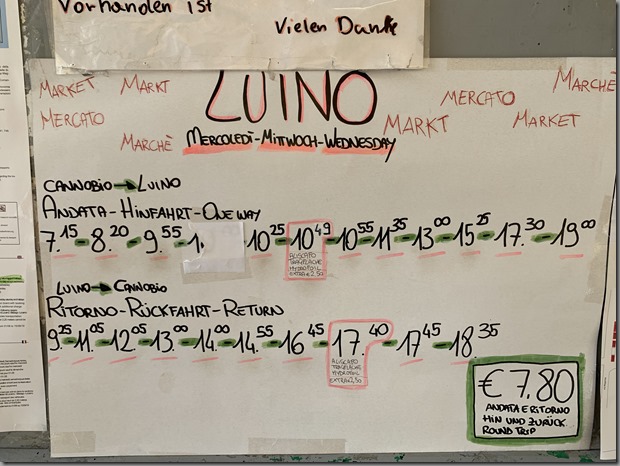 Vorhanden ist
Vielen Danke
LUINO
MARKET MARKT MERCATO MARCHÈ
MERCATO MARKT MARKET
MARCHÈ MERCOLEDÌ-MITTWOCH-WEDNESDAY
CANNOBIO → LUINO
ANDATA-HINFAHRT-ONE WAY
7.15 - 8.20 - 9.55 - 1. 10 25 - 10 49 - 10 55 - 11 35 - 13 00 - 15 25 - 17.30 - 19 00
ALISCAFO
TRAGFLÄCHE
HYDROFOIL
EXTRA € 2,50
LUINO → CANNOBIO
RITORNO-RÜCKFAHRT-RETURN
9 25 - 11 05 - 12 05 - 13 00 - 14 00 - 14.55 - 16 45 - 17.40 - 17 45 - 18.35
ALISCAFO
TRAGFLÄCHE
HYDROFOIL
EXTRA € 2,50
€ 7.80
ANDATA E RITORNO
HIN UND ZURÜCK
ROUND TRIP